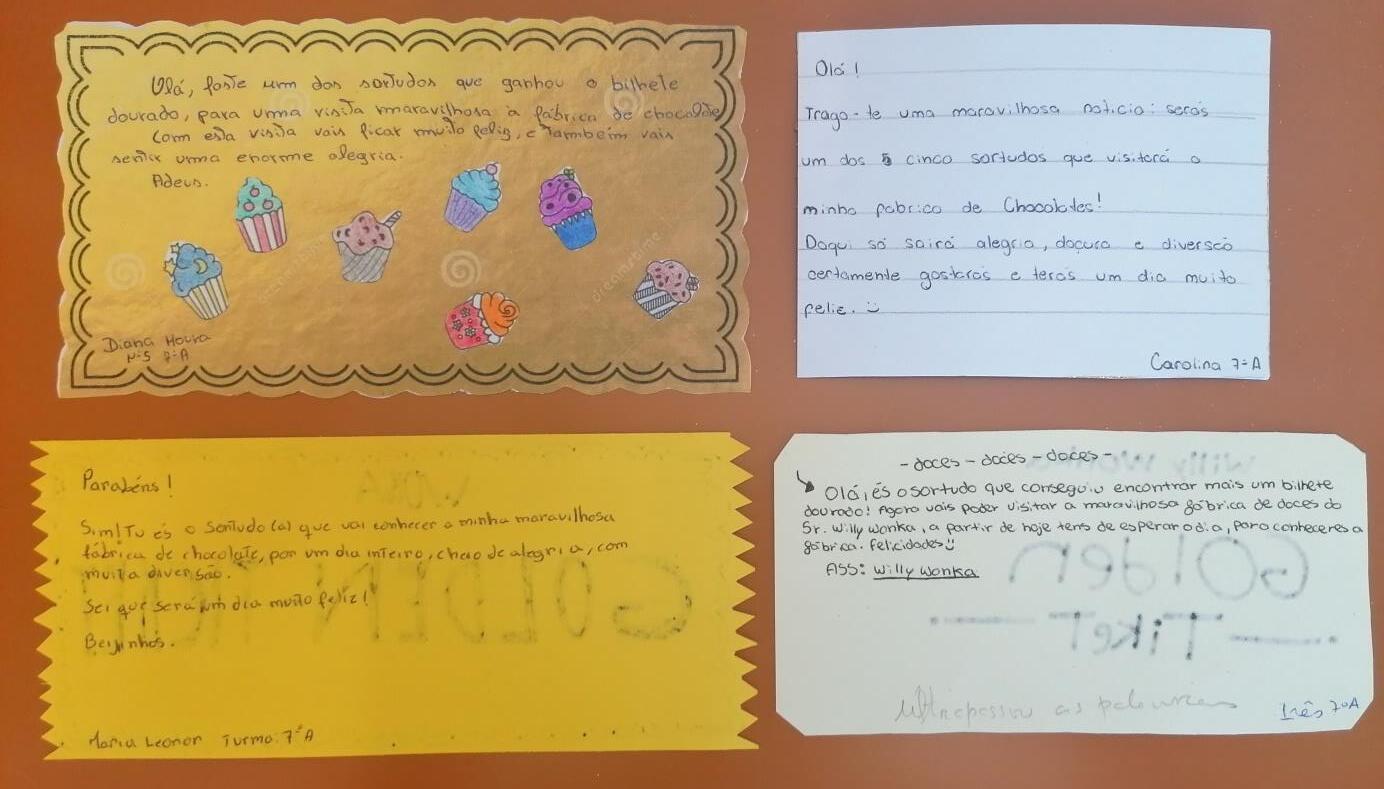 Olá, foste um dos sortudos que ganhou o bilhete
dourado, para uma visita maravilhosa à fábrica de chocolate
Com esta visita vais ficar muito feliz, e também vais
sentir uma enorme alegria.
Adeus.
Diana Moura
Nº5 7ºA
dreamstime
Olá!
Trago-te uma maravilhosa noticia: serás
um dos 5 cinco sortudos que visitará a
minha fabrica de Chocolates!
Daqui só sairá alegria, doçura e diversão
certamente gostarás e terás um dia muito
feliz. :)
Carolina 7ºA
Parabéns!
Sim! Tu és o sortudo (a) que vai conhecer a minha maravilhosa
fábrica de chocolate, por um dia inteiro, cheio de alegria, com
muita diversão.
Sei que será um dia muito feliz!
Beijinhos.
Maria Leonor Turma: 7ºA
WONKA
GOLDEN TICKET
-doces-doces-doces-
Olá, és o sortudo que conseguiu encontrar mais um bilhete
dourado! Agora vais poder visitar a maravilhosa fábrica de doces do
Sr. Willy Wonka, a partir de hoje tens de esperar o dia, para conheceres a
fábrica. Felicidades :)
ASS: Willy Wonka
Willy Wonka
GOlden
Tiket
Ultrapassou as palavras
Inês 7ºA